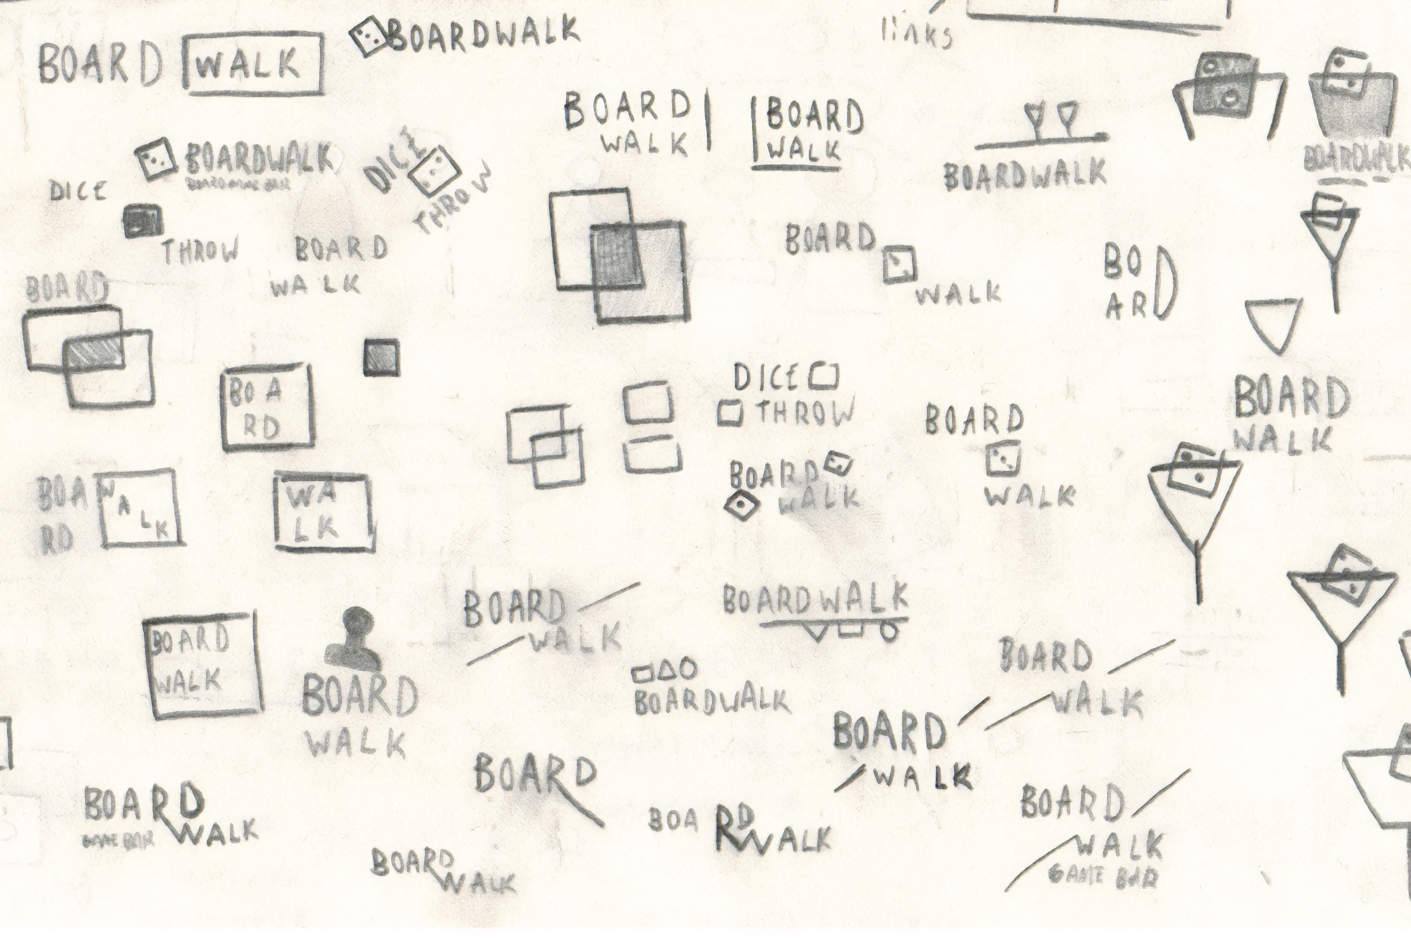 links
BOARD WALK
BOARDWALK
BOARD
WALK
BOARD
WALK
BOARDWALK
BOARDWALK
BOARDWALK
BOARDGAME BAR
DICE
THROW
DICE
THROW
BOARD
WALK
BOARD
WALK
BO
ARD
BOARD
BOA
RD
DICE
THROW
BOARD
WALK
BOARD
WALK
BOARD
WALK
BOA
RD
WALK
WA
LK
BOARD
WALK
BOARD
WALK
BOARD
WALK
BOARDWALK
BOARDWALK
BOARD
WALK
BOARD
WALK
BOARD
WALK
GAME BAR
BOARD
BOARD
GAME BAR WALK
BOARD
WALK
BOARD
WALK